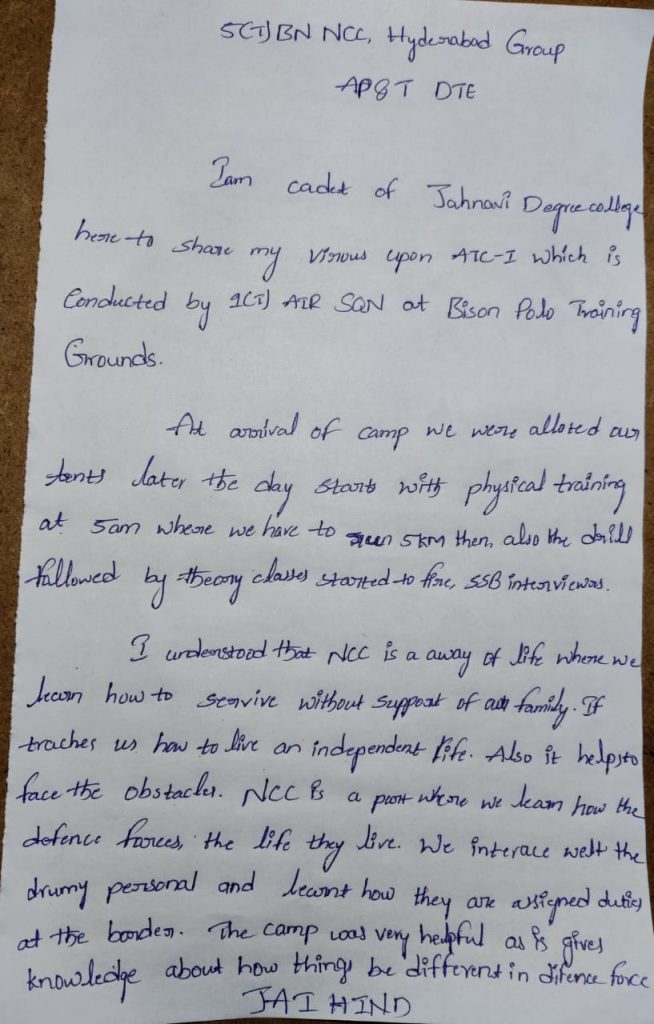 5(T) BN NCC, Hyderabad Group
AP&T DTE
I am cadet of Jahnavi Degree college
here to share my visous upon ATC-I which is
Conducted by 1(T) AIR SQN at Bison Polo Training
Grounds.
At arrival of camp we were alloted our
tents later the day starts with physical training
at 5am where we have to run 5KM then, also the drill
fallowed by theory classes started to fire, SSB interviews.
I understood that NCC is a away of life where we
learn how to servive without support of our family. If
traches us how to live an independent life. Also it helps to
face the obstacles. NCC is a part where we learn how the
defence forces, the life they live. We interace welt the
drumy personal and learnt how they are assigned duties
at the border. The camp was very helpful as is gives
knowledge about how things be different in difence force
JAI HIND